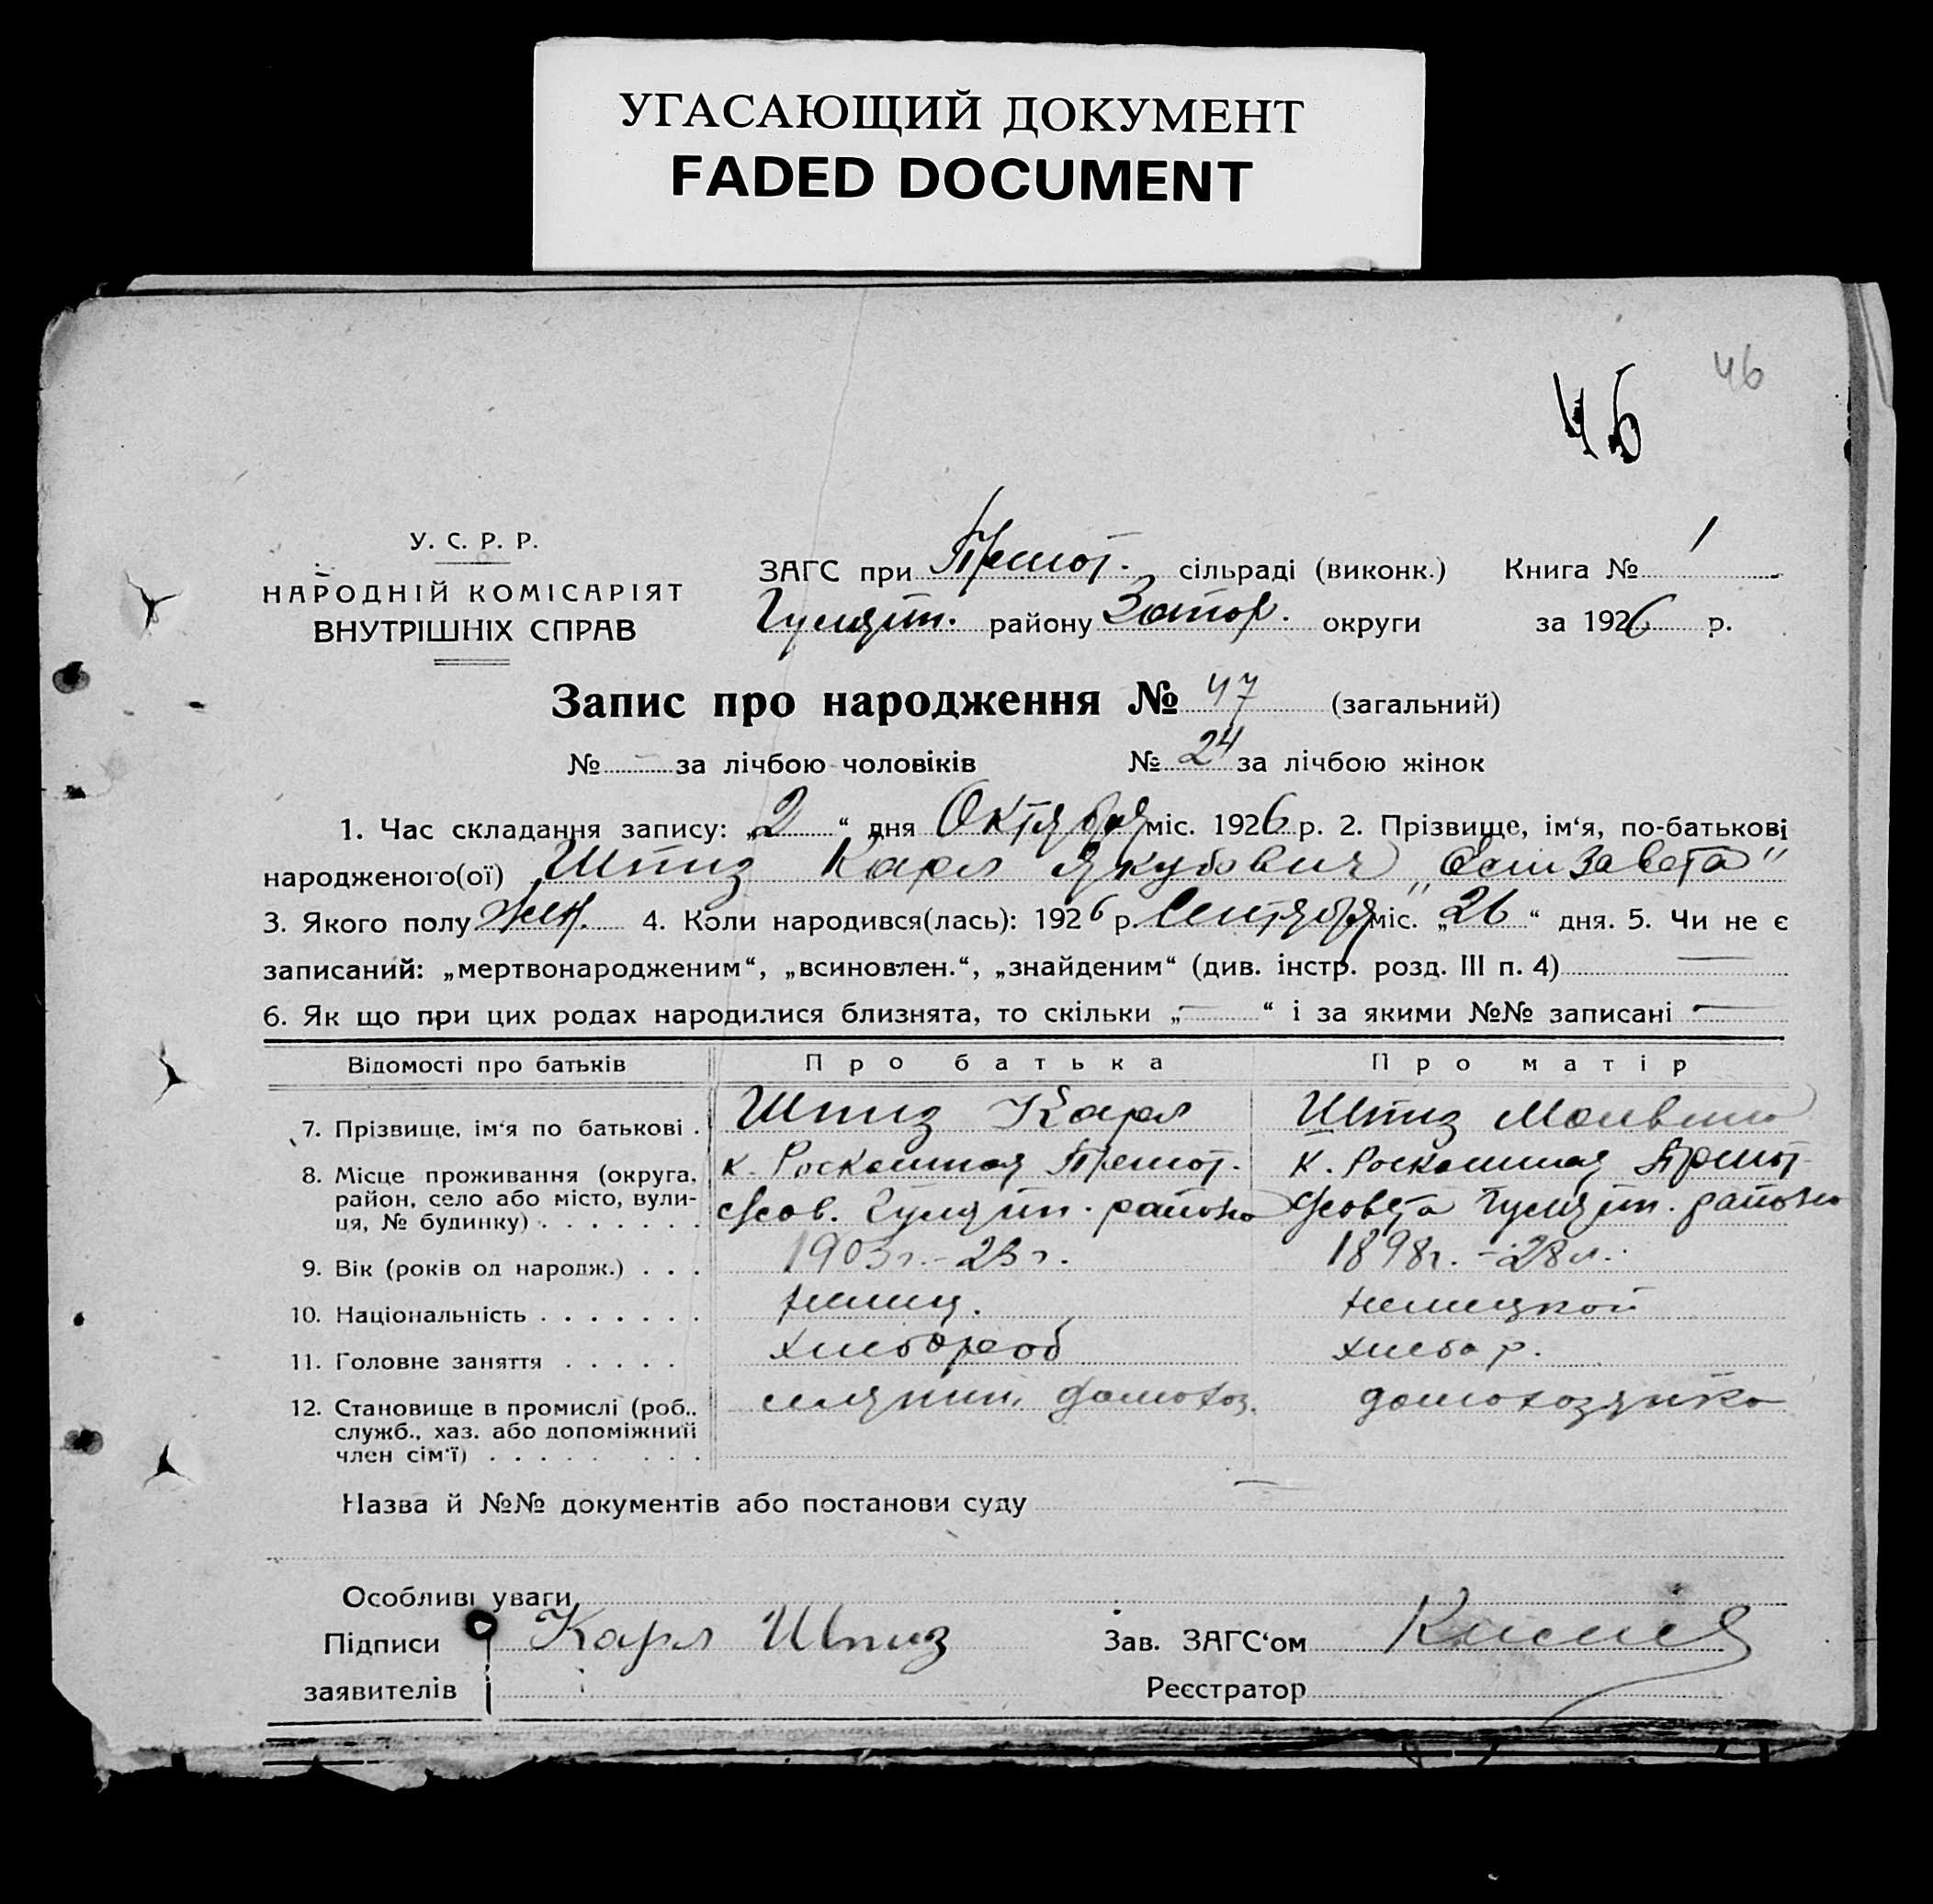 УГАСАЮЩИЙ ДОКУМЕНТ
FADED DOCUMENT
46
46
У. С. Р. Р.
НАРОДНІЙ КОМІСАРІЯТ
ВНУТРІШНІХ СПРАВ
ЗАГС при сільраді (виконк.) Книга № 1
Гуляйп. району Запор. округи за 1926 р.
Запис про народження № 47 (загальний)
№ — за лічбою чоловіків № 24 за лічбою жінок
1. Час складання запису: „2“ дня Октября міс. 1926 р. 2. Прізвище, ім‘я, по-батькові
народженого(ої) Штиз Карл Якубович „Елизавета“
3. Якого полу жен. 4. Коли народився(лась): 1926 р. Сентября міс. „26“ дня. 5. Чи не є
записаний: „мертвонародженим“, „всиновлен.“, „знайденим“ (див. інстр. розд. III п. 4) —
6. Як що при цих родах народилися близнята, то скільки „—“ і за якими №№ записані —
Відомості про батьків Про батька Про матір
7. Прізвище, ім‘я по батькові . Штиз Карл Штиз
8. Місце проживання (округа, к. Роскошная к. Роскошная
район, село або місто, вули- Гуляйп. района Гуляйп. района
ця, № будинку) . . . . . . .
9. Вік (років од народж.) . . . 1903 г. - 23 г. 1898 г. - 28 л.
10. Національність . . . . . . . немец. немецкой
11. Головне заняття . . . . . хлебороб хлебор.
12. Становище в промислі (роб., домохоз. домохозяйка
служб., хаз. або допоміжний
член сім‘ї) . . . . . . . . .
Назва й №№ документів або постанови суду —
Особливі уваги
Підписи Карл Штиз Зав. ЗАГС‘ом
заявителів Реєстратор